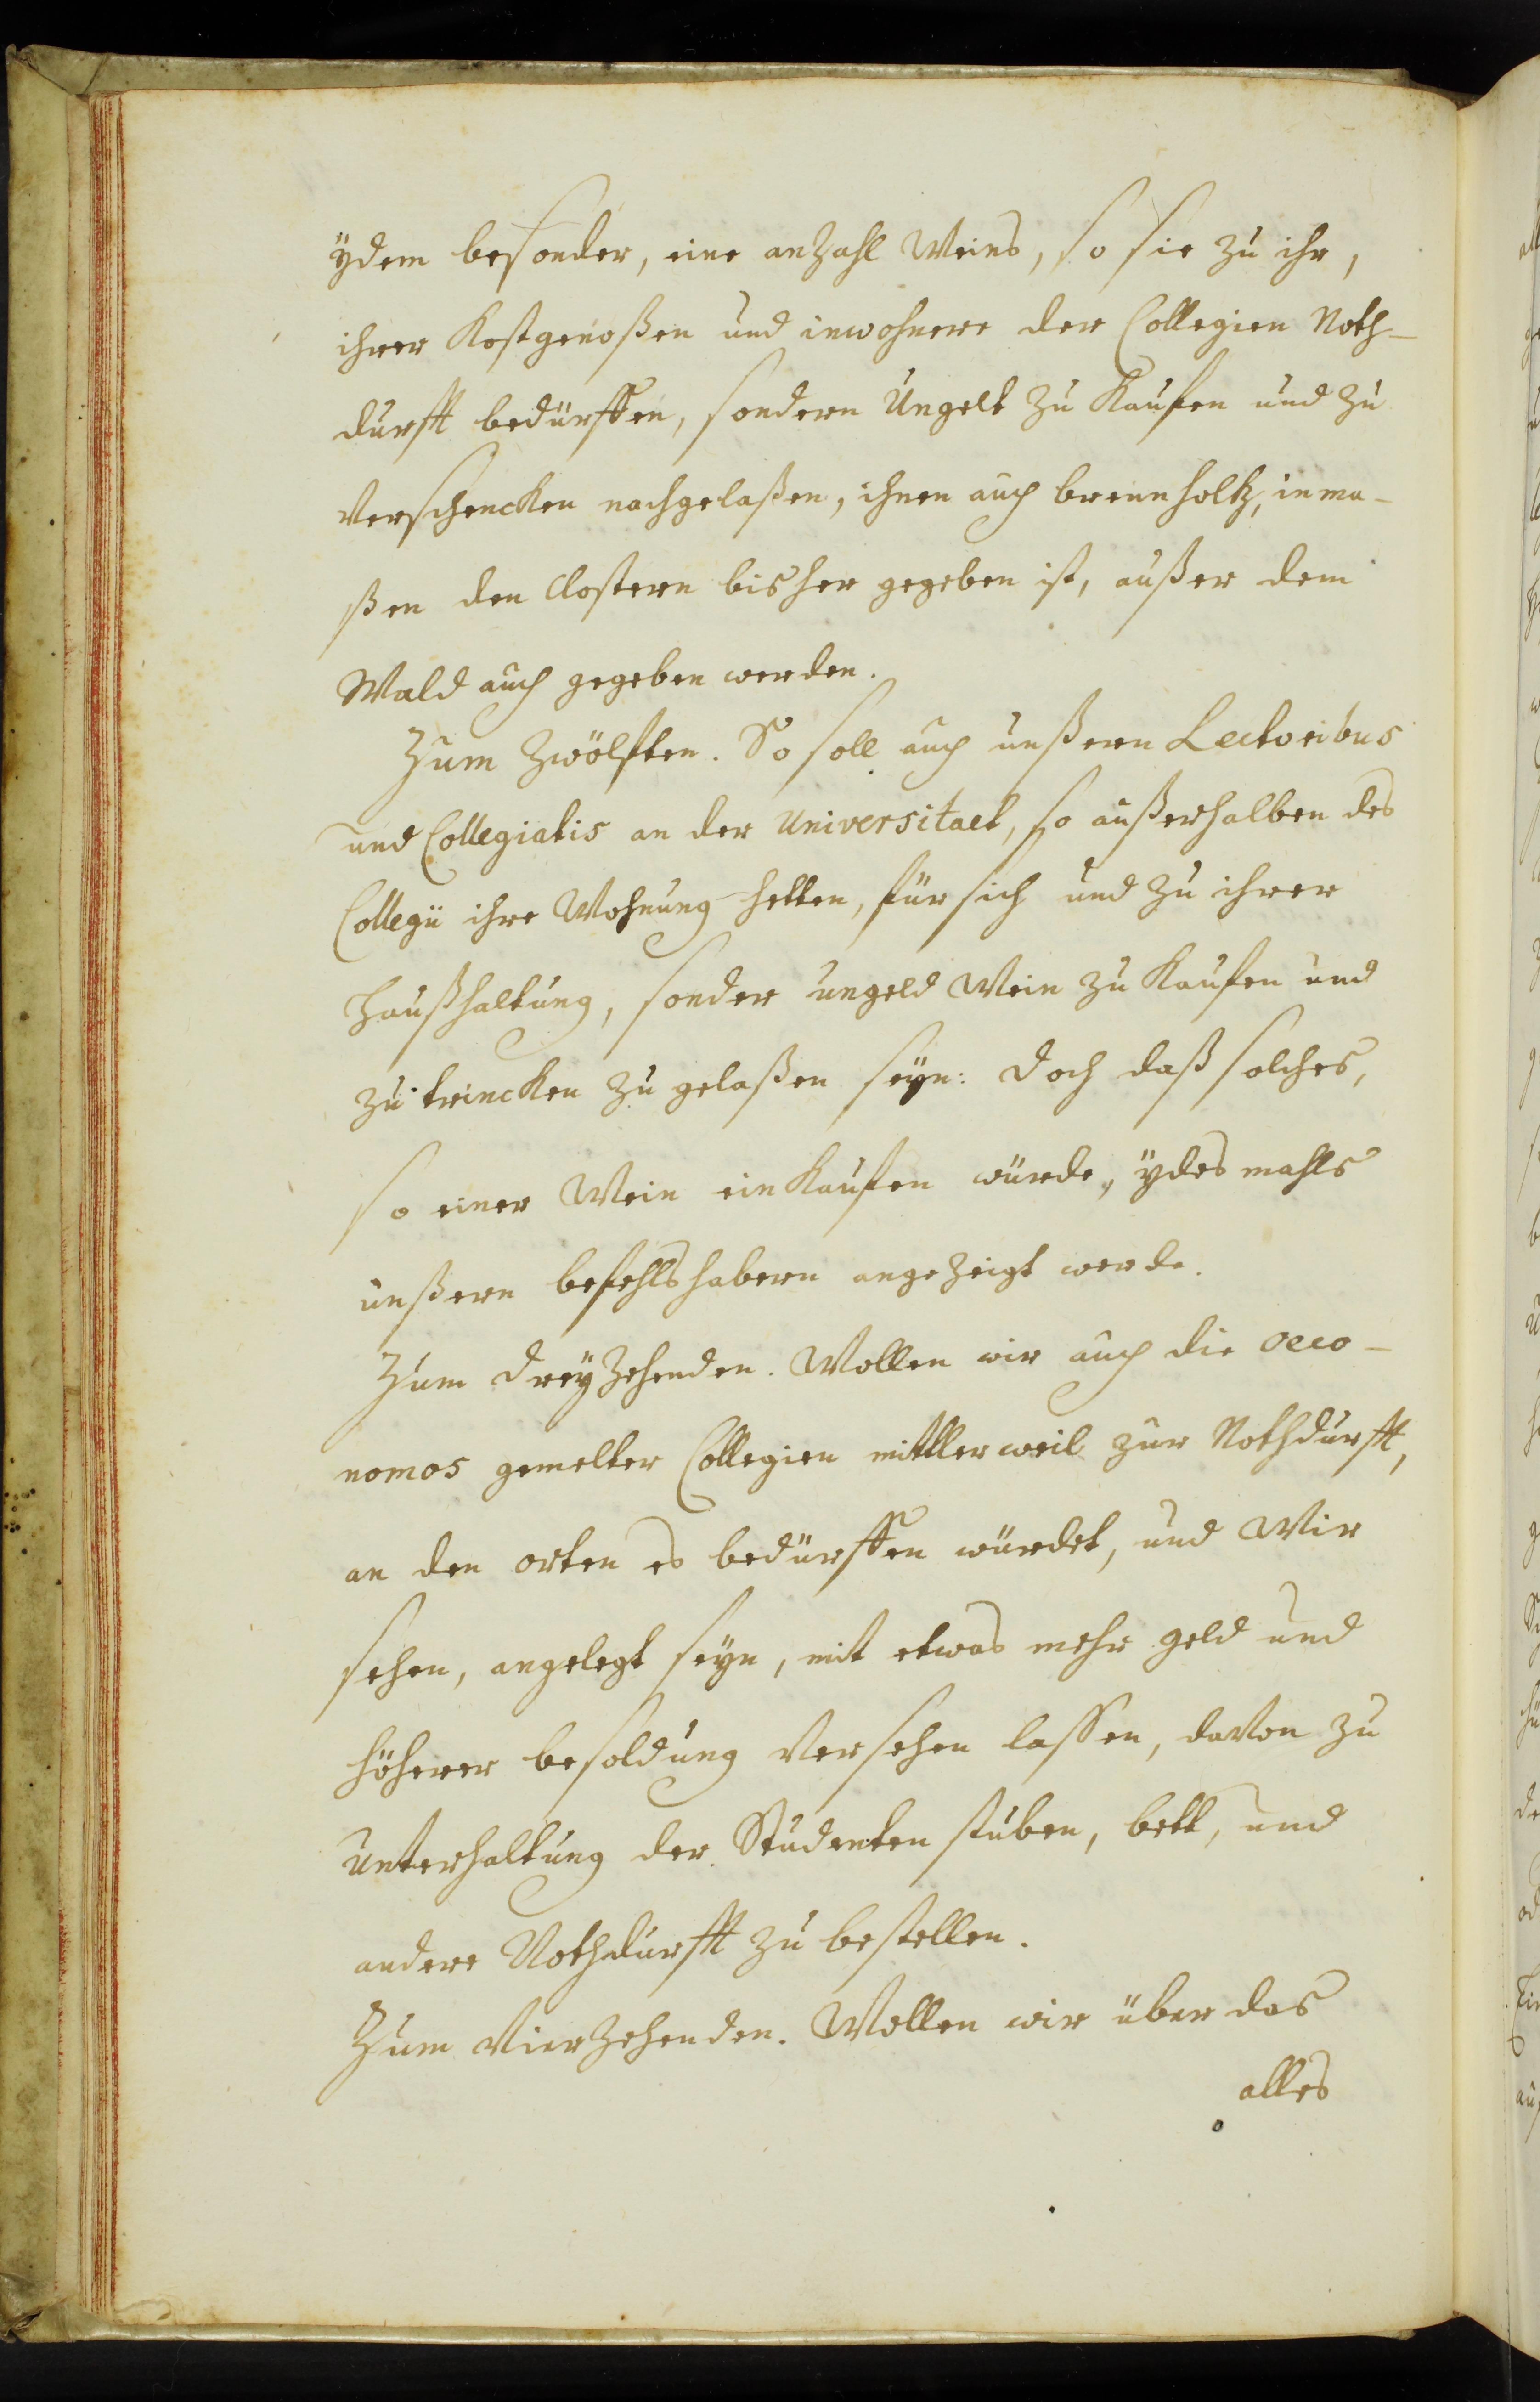 ÿdem besonder, eine anzahl Weins, so sie zu ihr,
ihrer Kostgenoßen und inwohnere der Collegien Noth-
durfft bedürffen, sondern Ungelt zu Kaufen und zu
Verschencken nachgelaßen, ihnen auch brennholtz, inma-
ßen den Clostern bisher gegeben ist, außer dem
Wald auch gegeben werden.
Zum Zwölften. So soll auch unßern Lectoribus
und Collegiatis an der Universitaet, so außerhalben des
Collegii ihre Wohnung hetten, für sich und zu ihrer
Haußhaltung, sonder ungeld Wein zu Kaufen und
zu trincken zu gelaßen seyn: doch daß solches,
so einer Wein ein Kaufen würde, ÿdes mahls
unßern befehlshabern angezeigt werde.
Zum dreyzehenden. Wollen wir auch die oeco-
nomos gemelter Collegien mittlerweil zur Nothdurfft,
an den orten es bedürffen würdet, und Wir
sehen, angelegt seyn, mit etwas mehr geld und
höherer besoldung Versehen lassen, davon zu
Unterhaltung der Studenten stuben, bett, und
andere Nothdurfft zu bestellen.
Zum Vierzehenden. Wollen wir über das
alles